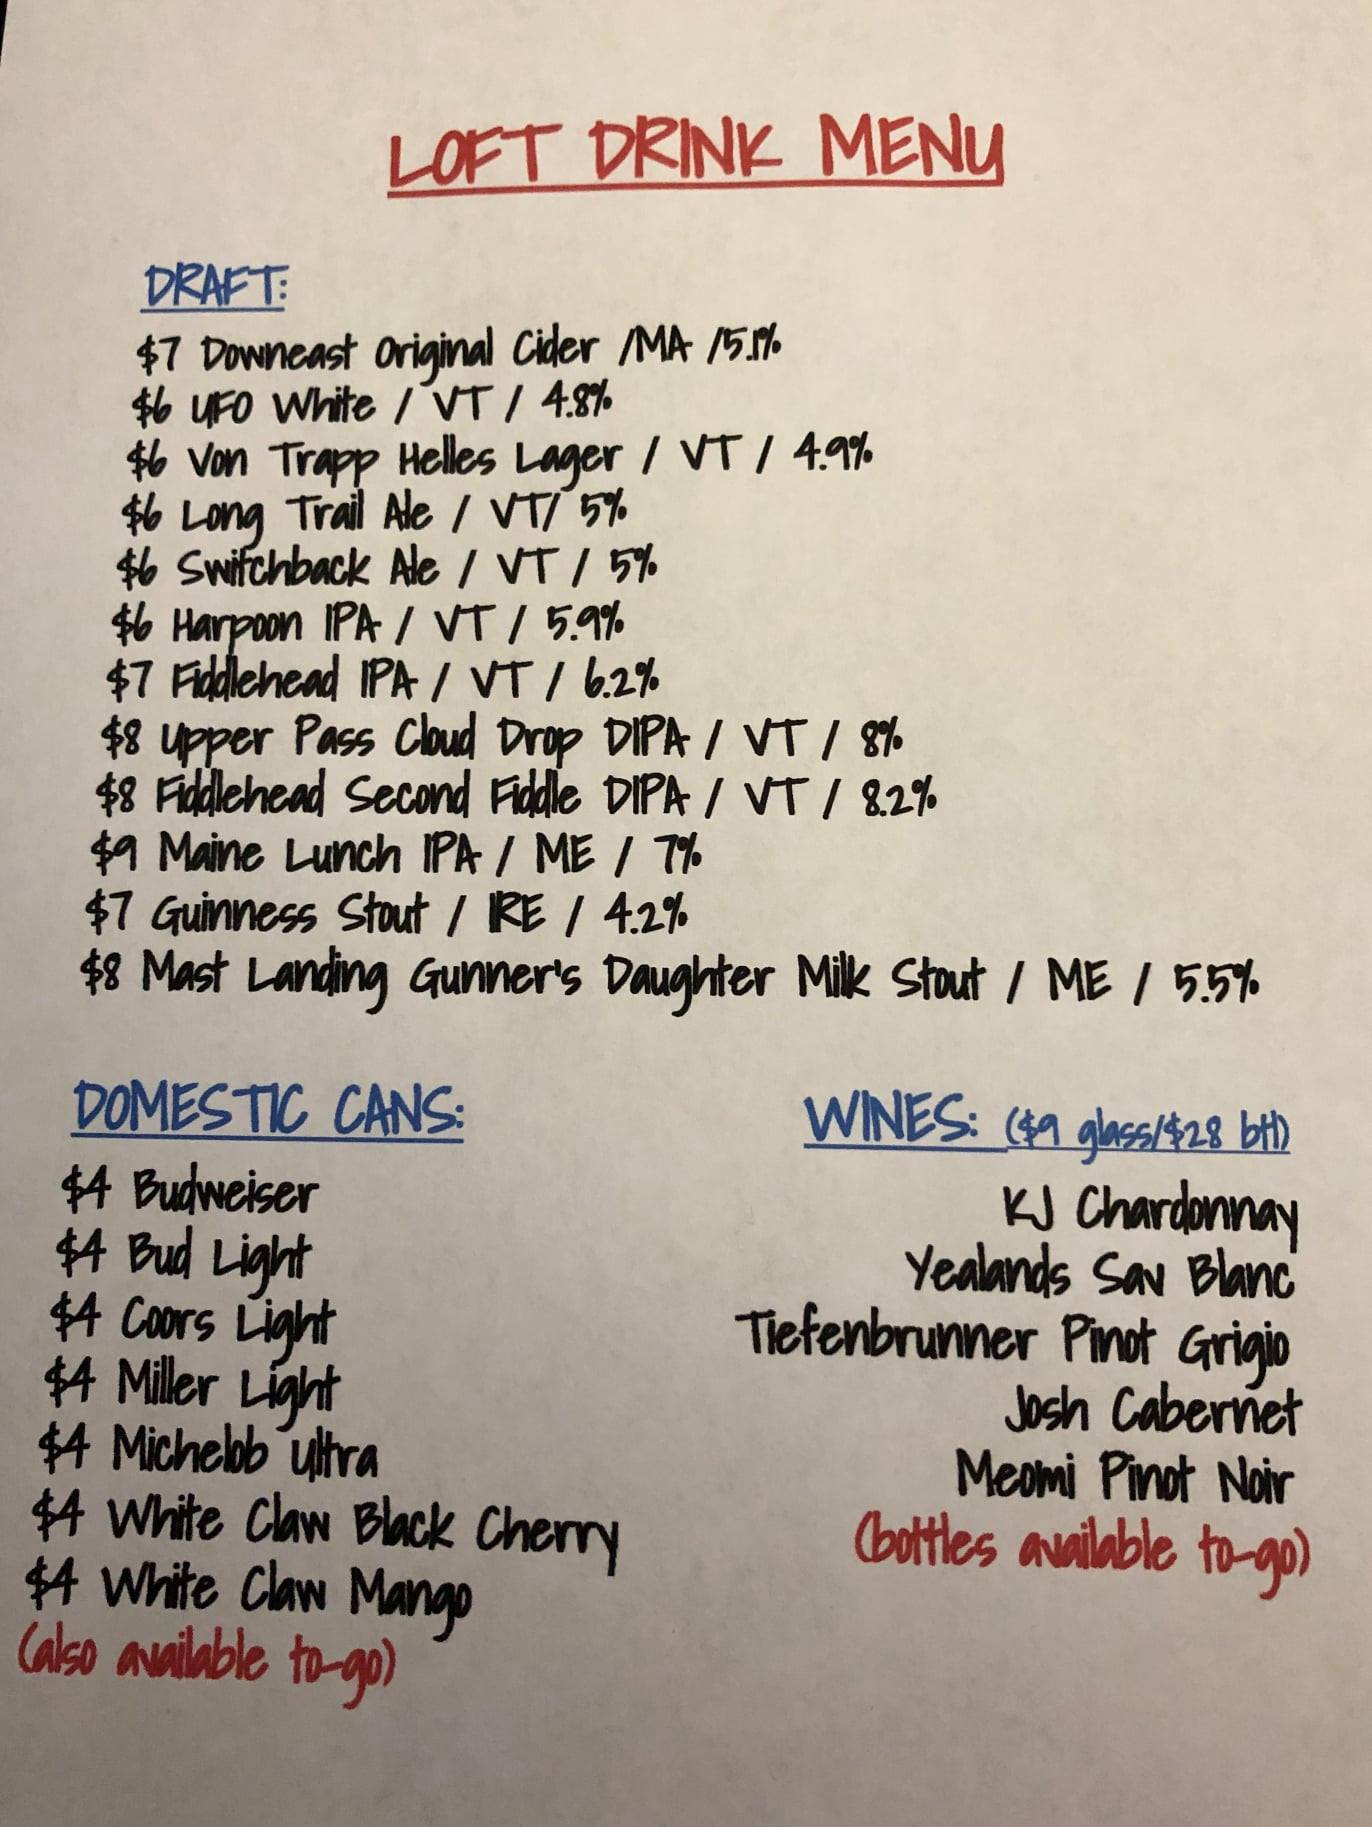 LOFT DRINK MENU
DRAFT:
$7 Downeast Original Cider /MA /5.1%
$6 UFO White / VT / 4.8%
$6 Von Trapp Helles Lager / VT / 4.9%
$6 Long Trail Ale / VT/ 5%
$6 Switchback Ale / VT / 5%
$6 Harpoon IPA / VT / 5.9%
$7 Fiddlehead IPA / VT / 6.2%
$8 Upper Pass Cloud Drop DIPA / VT / 8%
$8 Fiddlehead Second Fiddle DIPA / VT / 8.2%
$9 Maine Lunch IPA / ME / 7%
$7 Guinness Stout / IRE / 4.2%
$8 Mast Landing Gunner's Daughter Milk Stout / ME / 5.5%
DOMESTIC CANS:
$4 Budweiser
$4 Bud Light
$4 Coors Light
$4 Miller Light
$4 Michelob Ultra
$4 White Claw Black Cherry
$4 White Claw Mango
(also available to-go)
WINES: ($9 glass/$28 btl)
KJ Chardonnay
Yealands Sav Blanc
Tiefenbrunner Pinot Grigio
Josh Cabernet
Meomi Pinot Noir
(bottles available to-go)